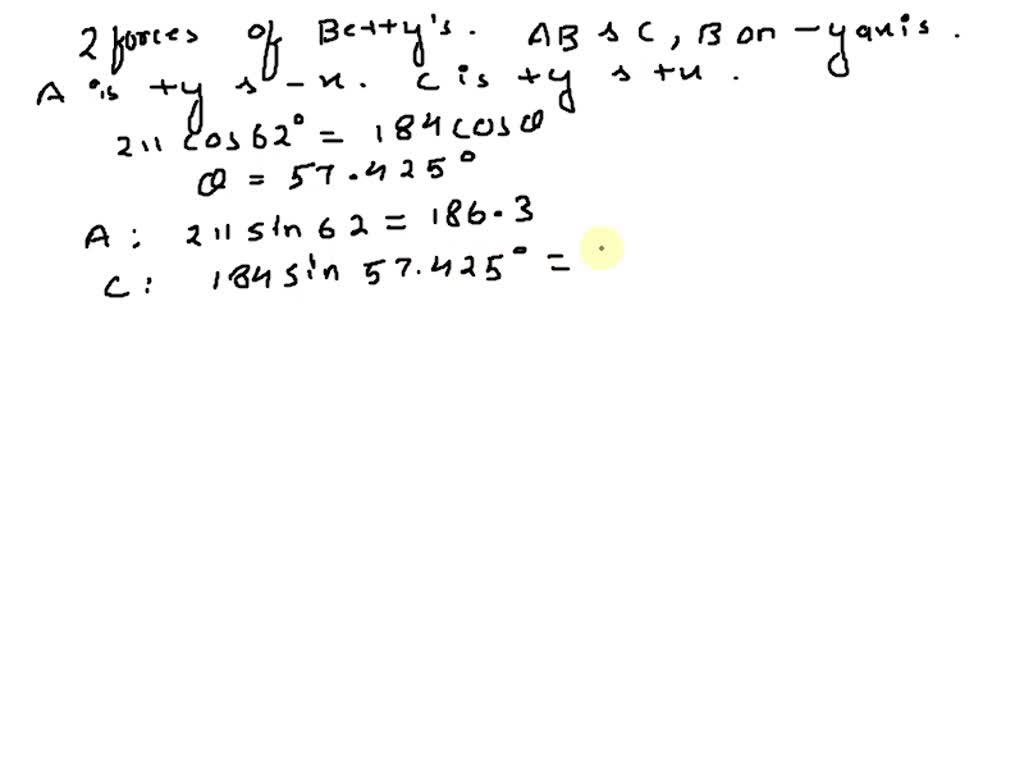 2 forces of Betty's. AB & C, B on -y axis.
A is +y & -x. C is +y & +x.
211 cos 62° = 184 cos θ
θ = 57.425°
A : 211 sin 62 = 186.3
C : 184 sin 57.425° =